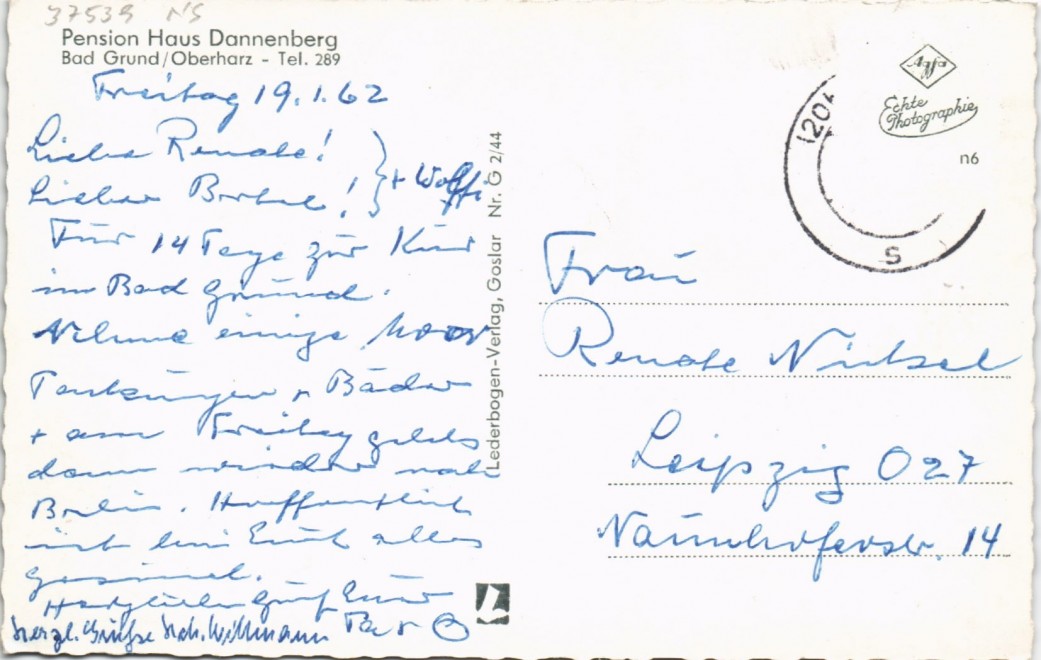 37539 NS
Pension Haus Dannenberg
Bad Grund/Oberharz - Tel. 289
Freitag 19.1.62
Liebe Renate!
Lieber ! } + Wolfi
Für 14 Tage zur Kur
im Bad Grund.
Nehme einige Moor
Packungen + Bäder
+ am Freitag gehts
dann wieder nach
Berlin. Hoffentlich
ist bei Euch alles
gesund.
Herzlichen Gruß Euer
herzl. Grüße Joh. Willmann
Lederbogen-Verlag, Goslar Nr. G 2/44
Agfa
Echte
Photographie
n6
(20
S
Frau
Renate
Leipzig O 27
Naunhoferstr. 14